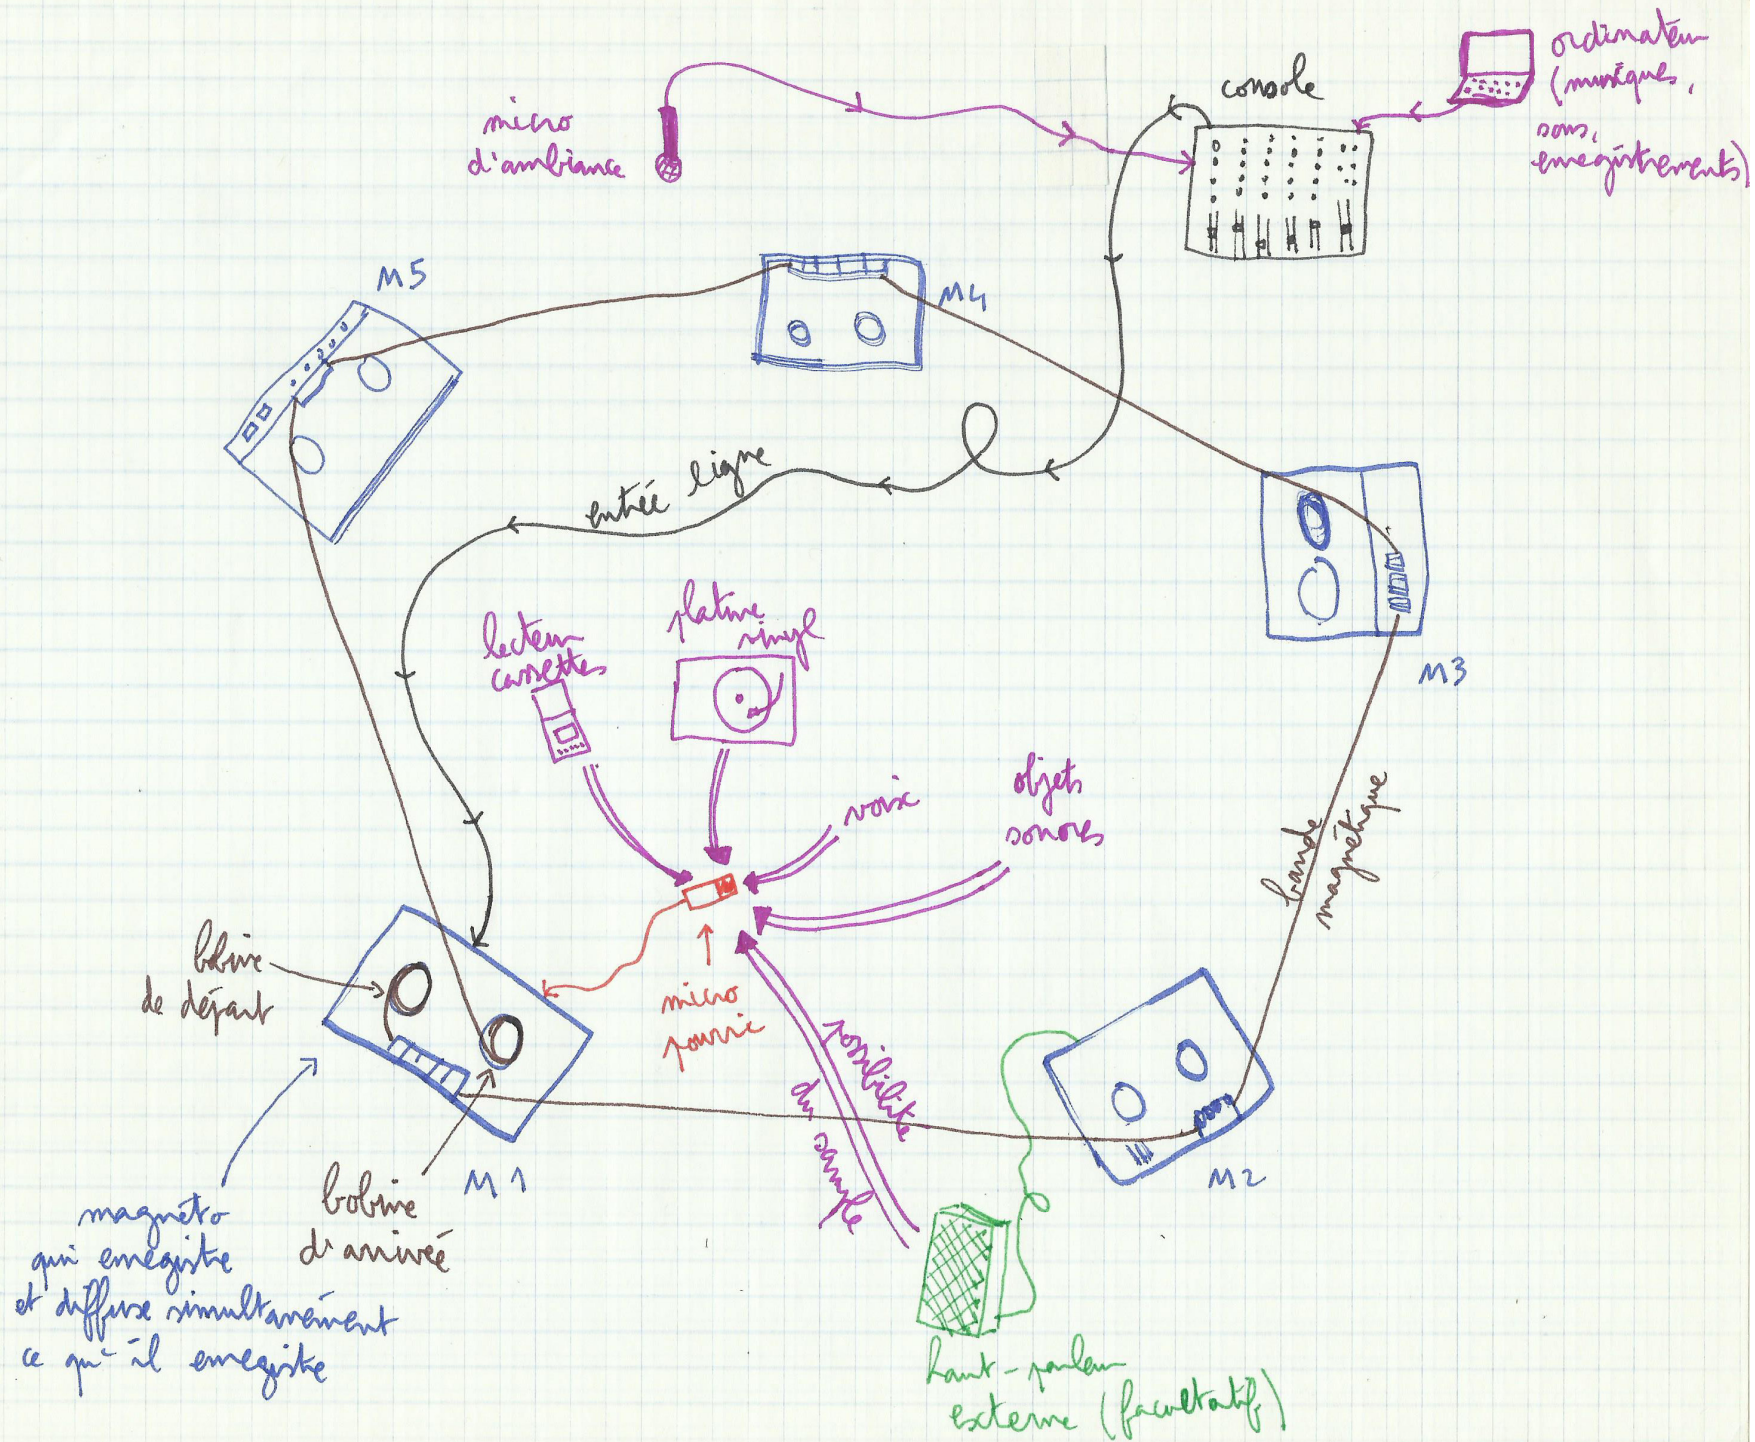 ordinateur
(musiques,
sons,
enregistrements)
console
micro
d'ambiance
M5
M4
entrée ligne
M3
lecteur
cassettes
platine
vinyl
voix
objets
sonores
bande
magnétique
bobine
de départ
micro
pourri
possibilité
du sample
M2
M1
bobine
d'arrivée
magnéto
qui enregistre
et diffuse simultanément
ce qu'il enregistre
haut-parleur
externe (facultatif)